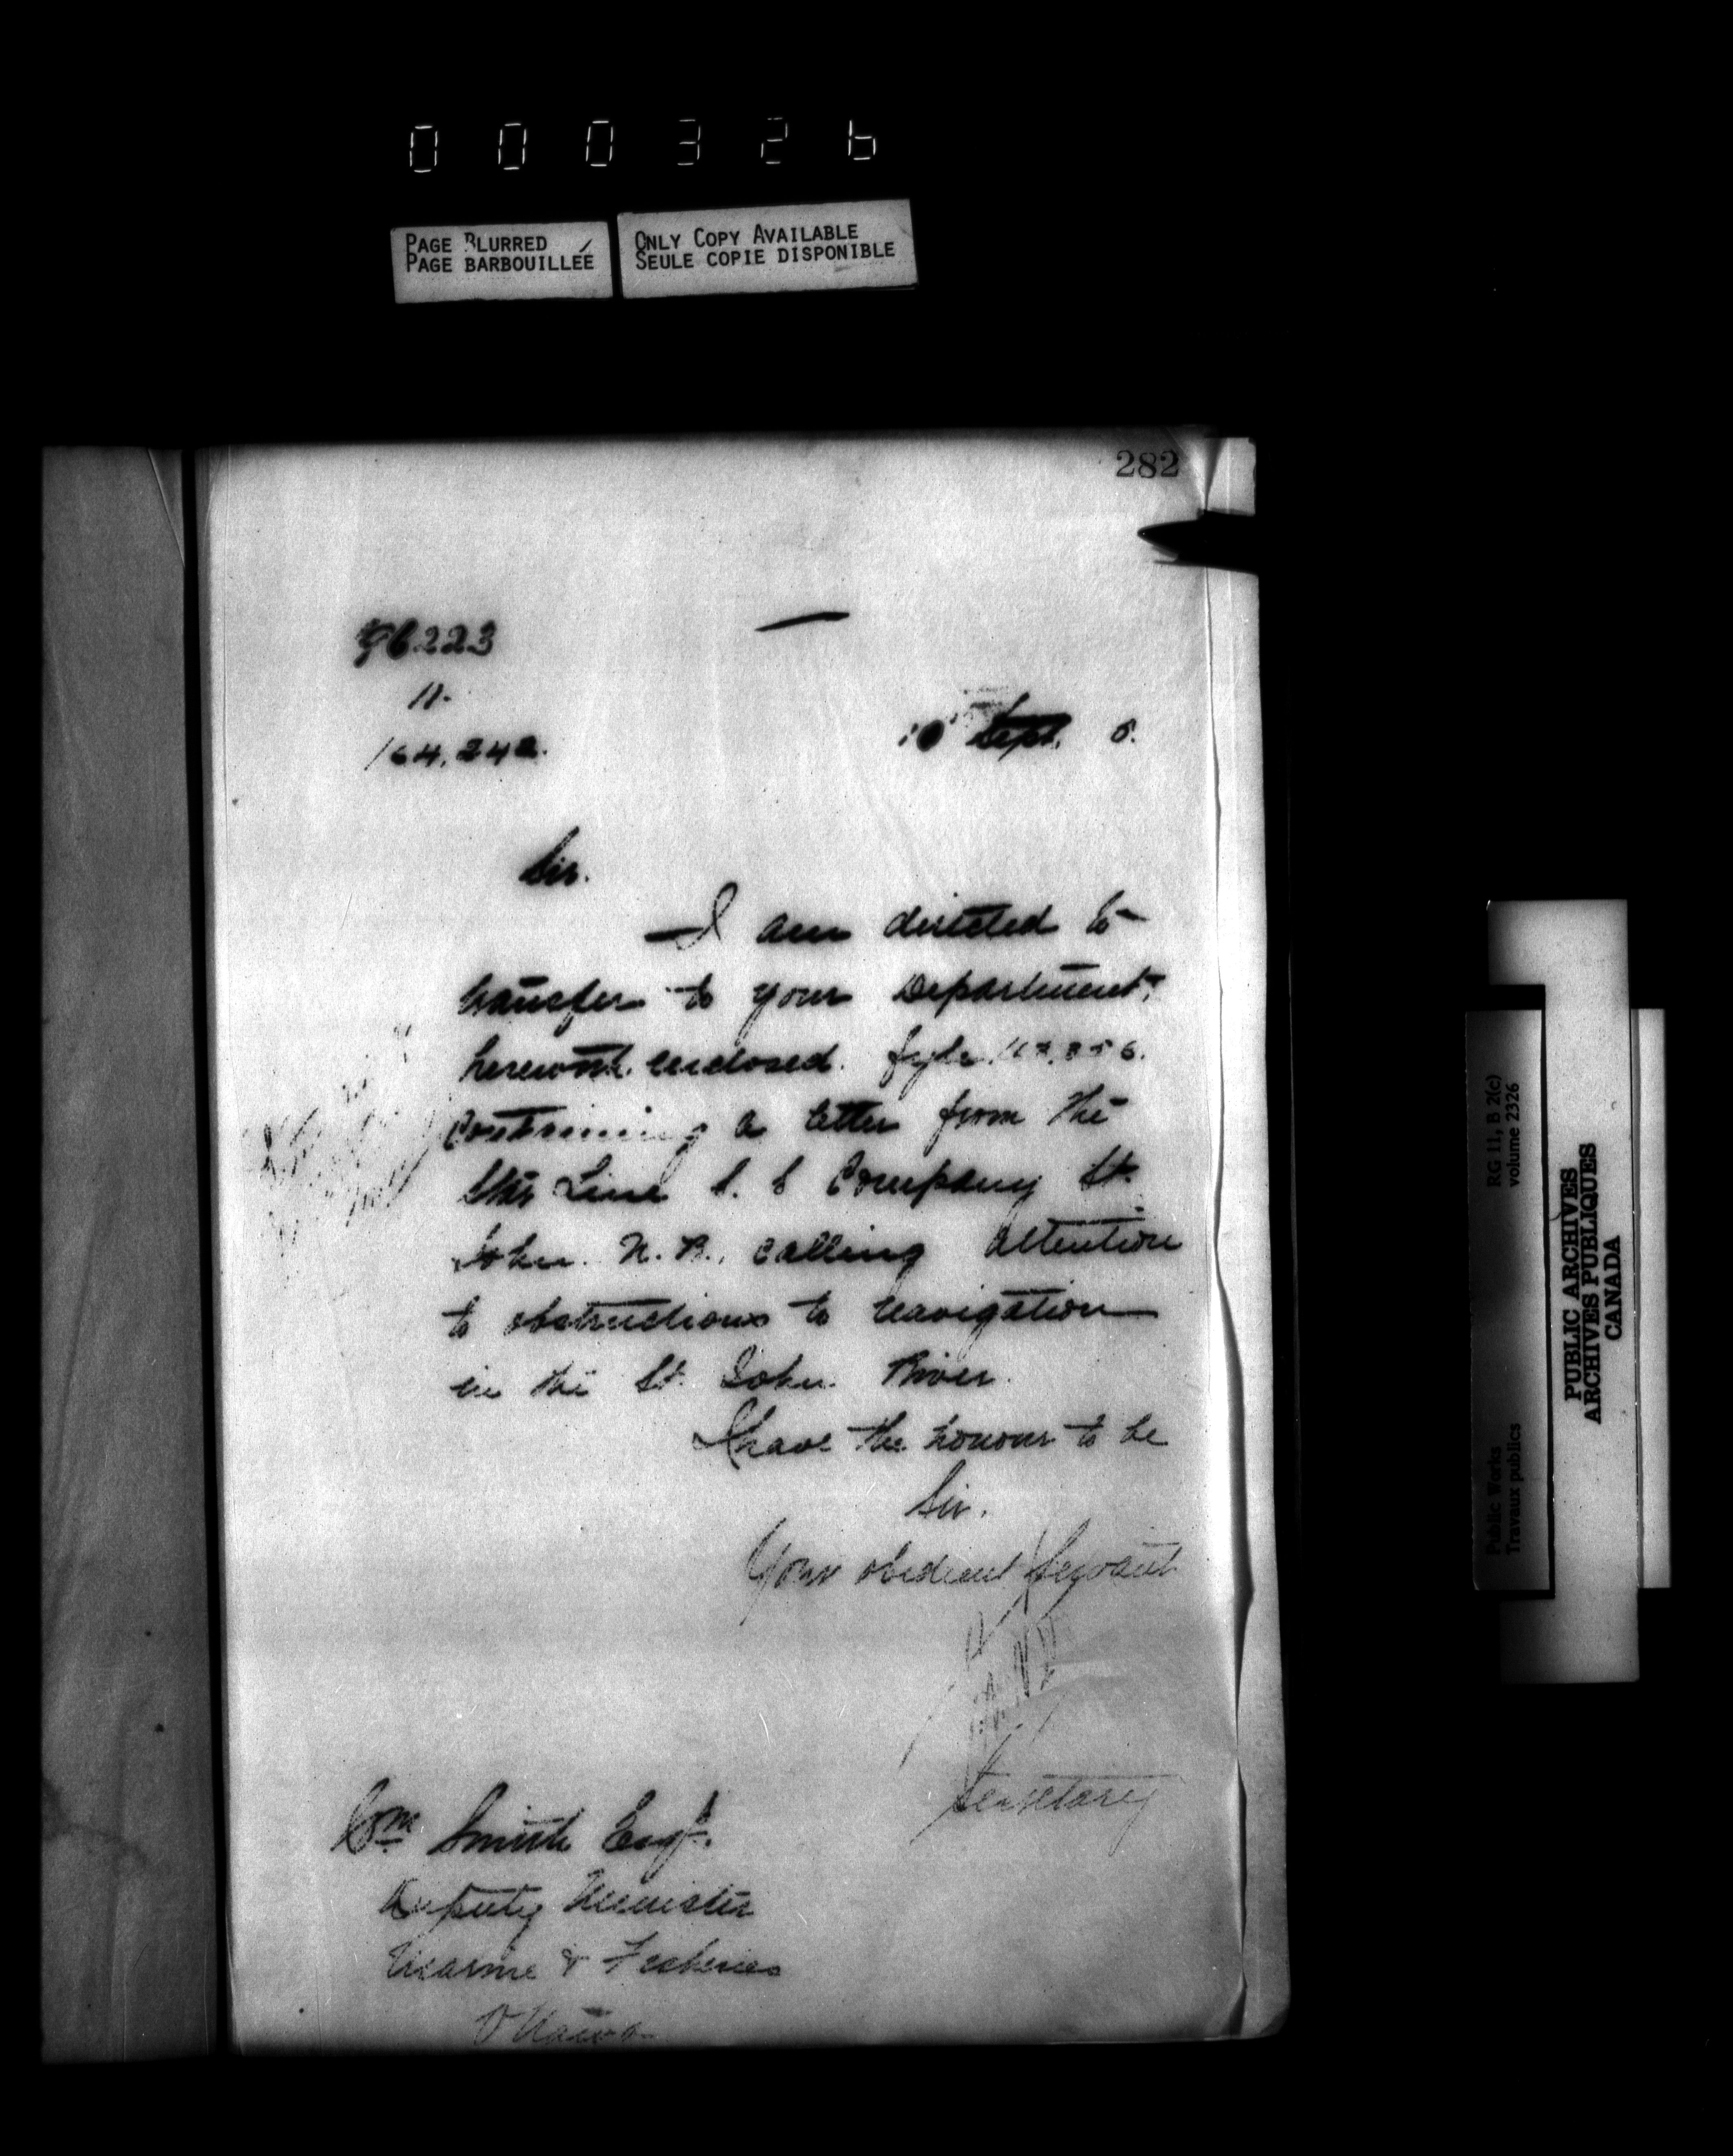 000326
PAGE BLURRED
PAGE BARBOUILLÉE
ONLY COPY AVAILABLE
SEULE COPIE DISPONIBLE
282
11.
10 Sept. 5.
Sir.
I am directed to
transfer to your Department,
herewith enclosed. fyle
Containing a letter from the
Star Line S. S Company St.
John. N. B., calling attention
to obstructions to navigation
in the St. John River.
I have the honour to be
Sir.
Your obedient Servant
Secretary
Wm Smith Esqr.
Deputy Minister
Marine & Fisheries
Ottawa
Public Works
Travaux publics
RG 11, B 2(c)
volume 2326
PUBLIC ARCHIVES
ARCHIVES PUBLIQUES
CANADA